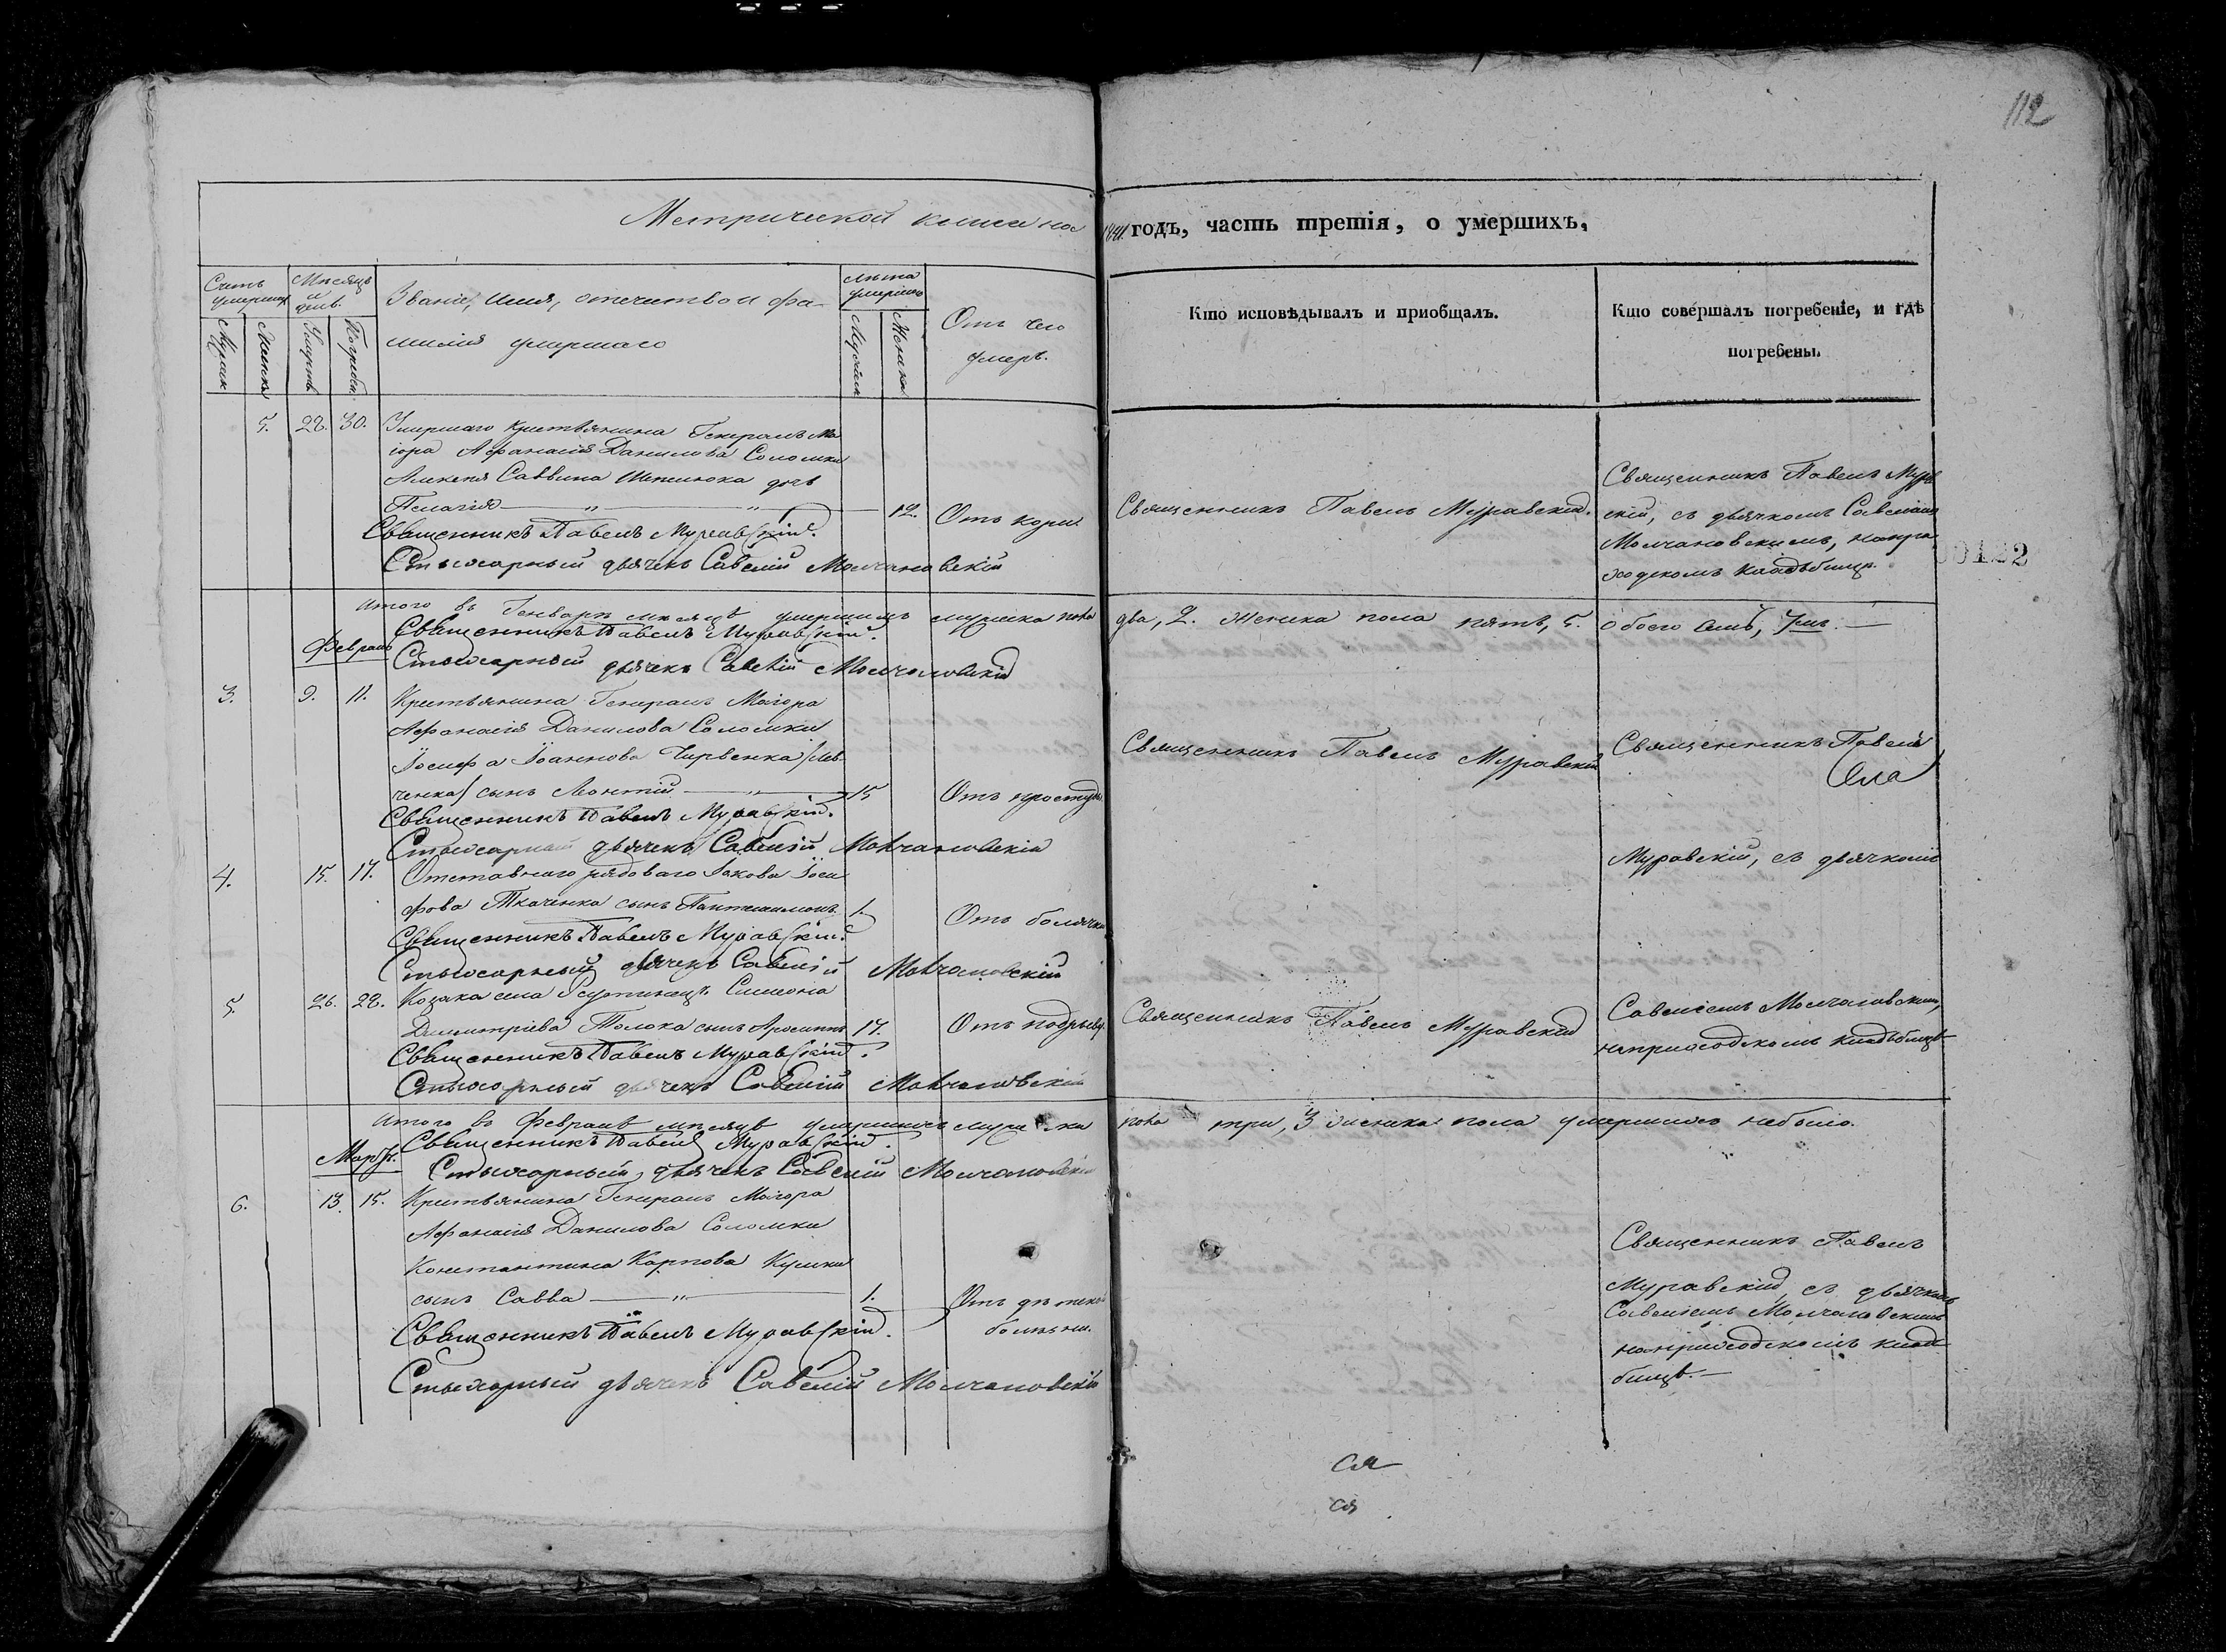 112
Метрической книги на 1841 годъ, часть третія, о умершихъ,
Счетъ умершихъ
Мѣсяцъ и день.
Званіе, имя, отечество и фамилія умершаго
Лѣта умершаго
Отъ чего умеръ.
Кто исповѣдывалъ и пріобщалъ.
Кто совершалъ погребеніе, и гдѣ погребены.
Мужск
Женск
Умерт
Погреб
Мужеска
Женска
5. 28. 30. Умершаго крестьянина Генералъ Ма
іора Афанасія Данилова Соломки
Саввина дочь
Пелагія — „ — „ — 12. Отъ кори
Священникъ Павелъ Муравскій.
Священникъ Павелъ Мура
скій, съ дьячкомъ Савеліемъ
Молчановскимъ, напри
ходскомъ кладбищѣ.
Священникъ Павелъ Муравскій.
Стихарный дьячекъ Савелій Молчановскій
Итого въ Генварѣ мѣсяцѣ умершихъ мужеска пола два, 2. женска пола пять, 5. обоего семь, 7мь.
Священникъ Павелъ Муравскій.
Февраль
Стихарный дьячекъ Савелій Молчановскій
3. 9. 11. Крестьянина Генералъ Маіора
Афанасія Данилова Соломки
Іосифа Іоаннова Чирвенка /Лев
ченка/ сынъ Леонтій — „ — 15 Отъ простуды
Священникъ Павелъ Муравскій
Священникъ Павелъ
Священникъ Павелъ Муравскій.
Стихарный дьячекъ Савелій Молчановскій
4. 15. 17. Отставнаго рядоваго Іакова Іоси
фова Ткаченка сынъ Пантелимонъ. 1. Отъ болячки
Муравскій, съ дьячкомъ
Священникъ Павелъ Муравскій.
Стихарный дьячекъ Савелій Молчановскій
5. 26. 28. Козака села Симеона
Димитріева Толока сынъ 17. Отъ подрыву
Священникъ Павелъ Муравскій
Савеліемъ Молчановскимъ,
наприходскомъ кладбищѣ
Священникъ Павелъ Муравскій.
Стихарный дьячекъ Савелій Молчановскій
Итого въ Февралѣ мѣсяцѣ умершихъ мужеска пола три, 3 женска пола умершихъ небыло.
Священникъ Павелъ Муравскій.
Мартъ.
Стихарный дьячекъ Савелій Молчановскій
6. 13. 15. Крестьянина Генералъ Маіора
Афанасія Данилова Соломки
Константина Карпова
сынъ Савва — „ — 1. Отъ дѣтской
болѣзни.
Священникъ Павелъ
Муравскій, съ дьячкомъ
Савеліемъ Молчановскимъ
наприходскомъ клад
бищѣ. —
Священникъ Павелъ Муравскій.
Стихарный дьячекъ Савелій Молчановскій